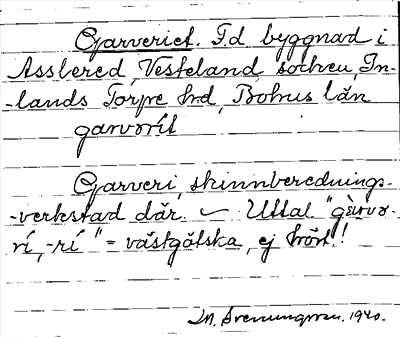 Garveriet. F.d. byggnad i
Assbered, Vesteland, socken, In-
-lands Torpe hrd, Bohus län
garvörit
Garveri, skinnberednings-
-verkstad där. — Uttal "gàrvə-
rí, -rí" = västgötska, ej hört!
1940.